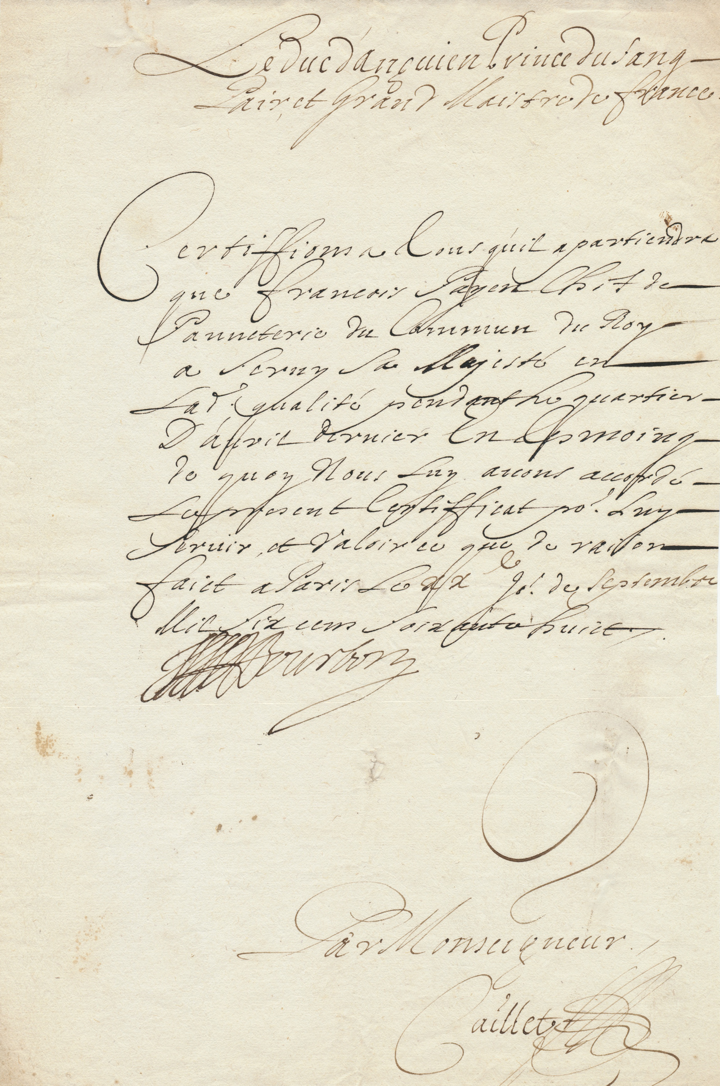 Le duc d'anguien Prince du sang
Pair, et Grand Maistre de france
Certiffions a tous qu'il apartiendra
que francois Payen Chef de
Panneterie du Commun du Roy
a servy Sa Majesté en
Lad.e qualité pendant le quartier
D'auril dernier En tesmoing
de quoy Nous Luy auons accordé
Le present Certifficat po.r Luy
seruir, et Valoir ce que de raison
faict a Paris Le xx e Jo.r de septembre
Mil six cens soixante huict
Bourbon
Par Monseigneur
Caillet